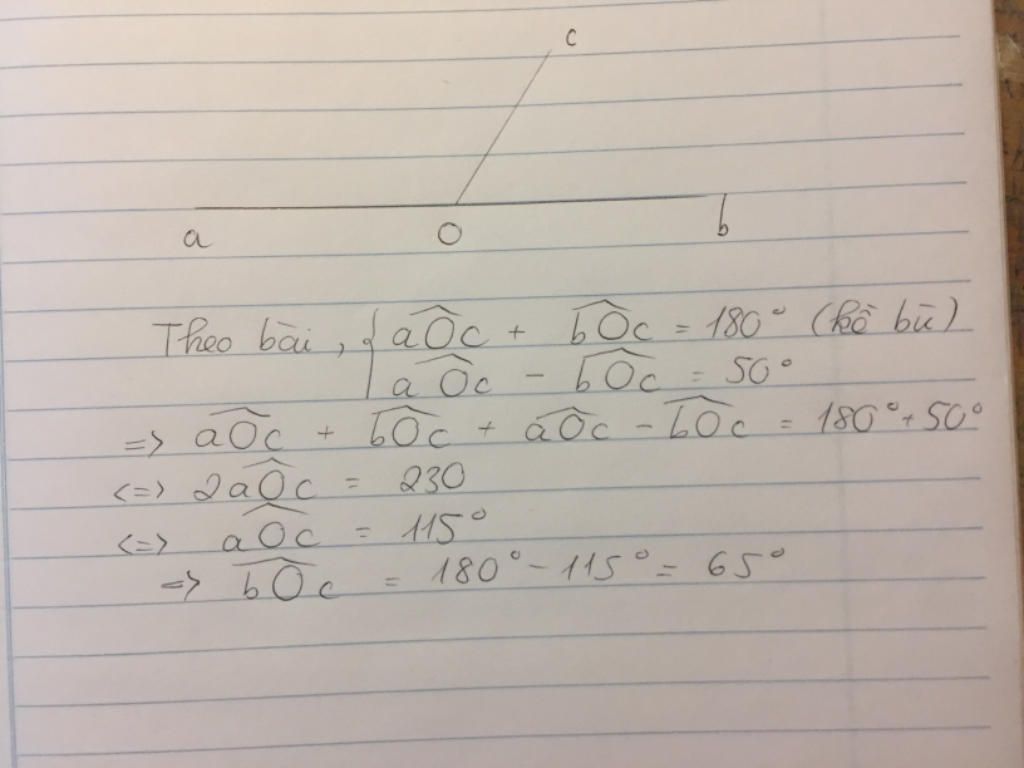 c
a O b
Theo bài, { aOc + bOc = 180° (kề bù)
aOc - bOc = 50°
=> aOc + bOc + aOc - bOc = 180° + 50°
<=> 2aOc = 230
<=> aOc = 115°
=> bOc = 180° - 115° = 65°